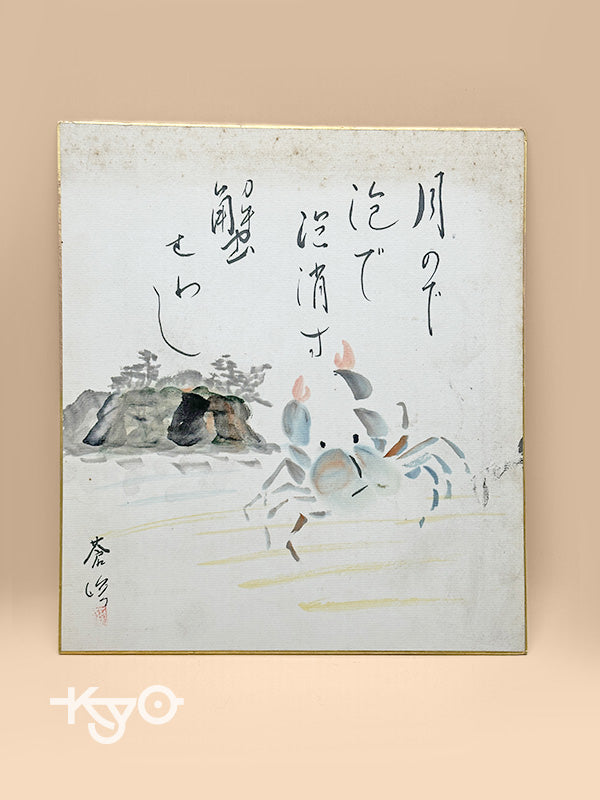 月の下
泡で
泡消す
蟹
せわし
蒼
Kyo